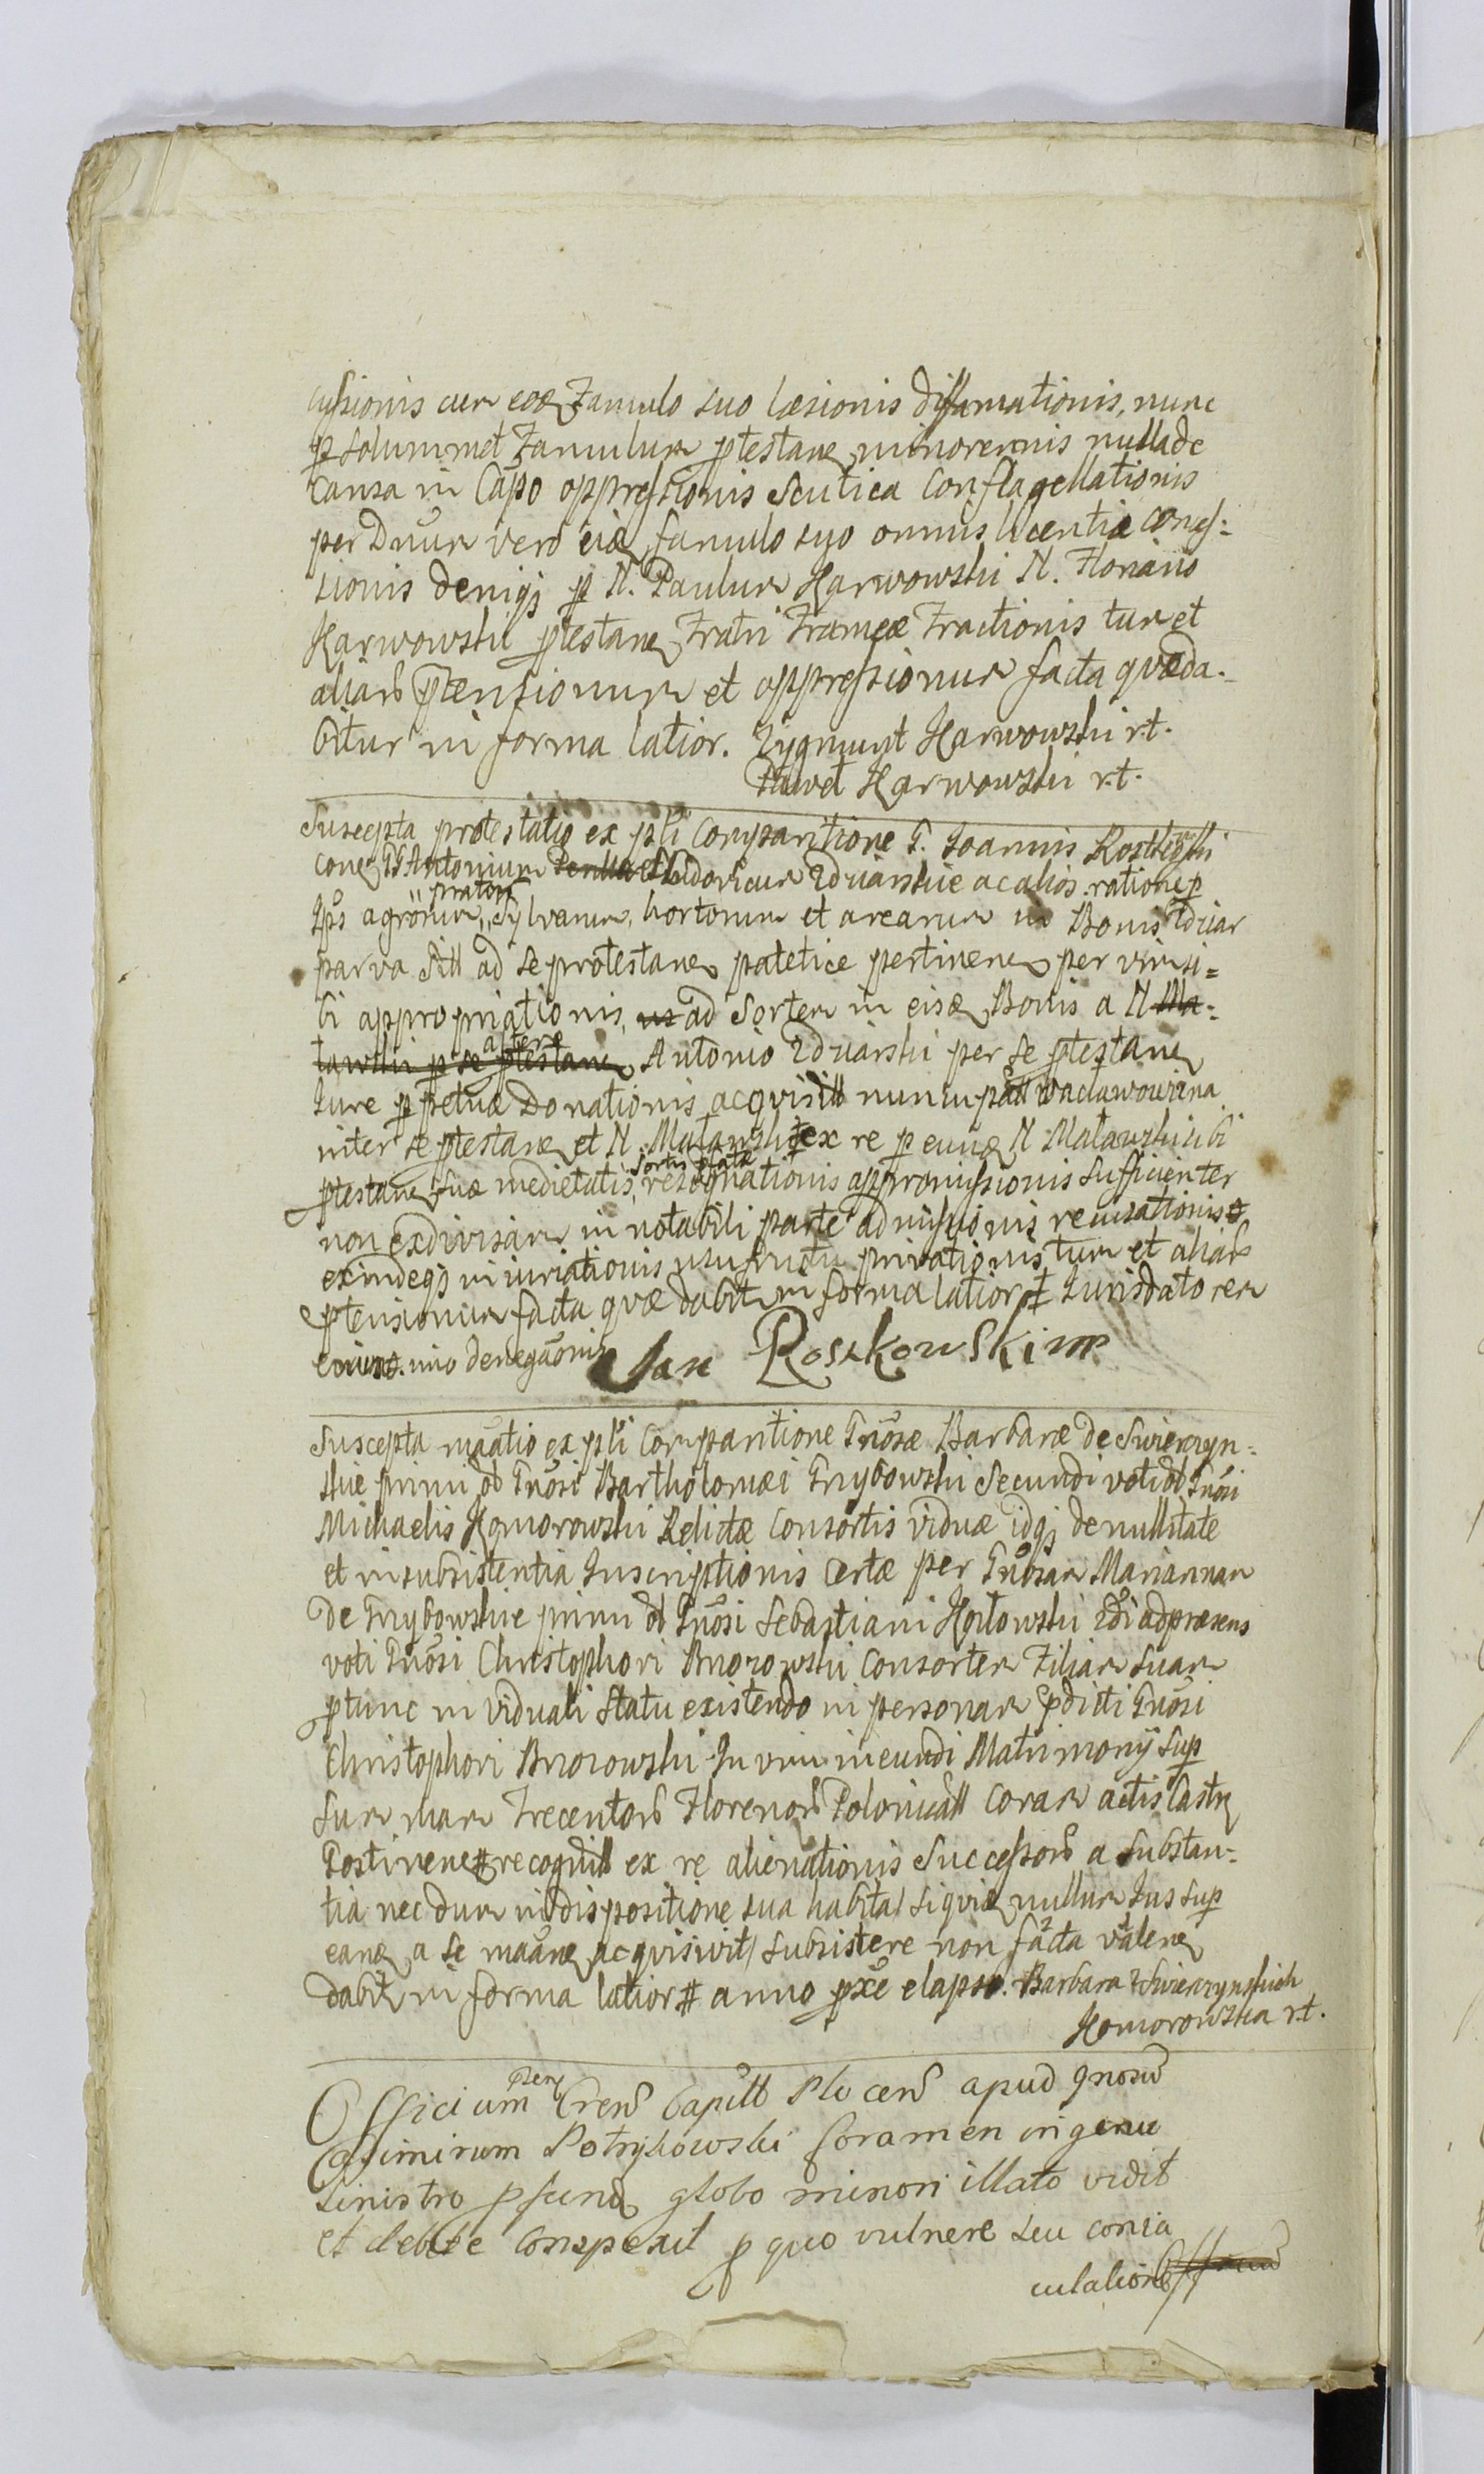 cussionis cum eod Famulo suo læsionis diffamationis, nunc
p solummet Famulum ptestane minorennis nullade
causa in Cãpo oppressionis Scutica Conflagellationis
per Dnum vero eid famulo suo omnis licentiæ conces:
sionis deniqs p N. Paulum Karwowski N. Floriano
Karwowski ptestane Fratri Frameæ Fractionis tum et
aliarũ ptensionum et oppressionum facta quæ da-
bitur in forma latior. Zygmunt Karwowski r.t.
Paweł Karwowski r.t.
Suscepta protestatio ex psti Comparitione G. Joannis Rostkowski
cone GG Antonium Ludovicum Zduarskie ac alios ratione p
pratorũ
Ips agrorum, Sylvarum, hortorum et arearum in Bonis Zduar
parva sitt ad se protestane patetice pertinene per vim si=
bi appropriationis, ad Sortem in eisd Bonis a N Ma-
tawski p se ptestane Antonio Zduarski per se ptestane
Jure ppetuæ Donationis acquisitt nuncupatt Wacławowizna
inter se ptestane et N. Matawski ex re p eund N Matawski sibi
sortis
ptestane suæ medietatis, resignationis appromissionis sufficienter
non exdivisam in notabili parte admissionis recusationis
exindeqs iniuriationis usufructu privationis tum et aliarũ
ptensionum facta quæ dabit in forma latior Jurisdatorem
denegãonis Jan Roszkowski mp
Suscepta mãatio ex psti Comparitione Gnõsæ Barbaræ de Swierczyn=
skie primi ol Gnõsi Bartholomæi Grzybowski Secundi voti ol Gnõsi
Michaelis Komorowski Relictæ Consortis viduæ idqs de nullitate
et insubsistentia Inscriptionis Certæ per Gnõsam Mariannam
De Grzybowskie primi ol Gnõsi Sebastiani Kozłowski 2di ad præsens
voti Gnõsi Christophori Brzozowski Consortem Filiam suam
ptunc in viduali statu existendo in personam pdicti Gnõsi
Christophori Brzozowski In vim ineundi Matrimonÿ sup
Summam Trecentorũ Florenorũ Polonicaltt coram actis Castrs
Postinene recognitt ex re alienationis Successorũ a substan-
tia necdum in dispositione sua habita/ siquid nullum Jus sup
eane a se mãane acquisivit/ subsistere non facta valene
dabit in forma latior anno pxe elapso. Barbara z Swierczynskich
Komorowska r.t.
psen
Officium Crenũ Capitt Plocenũ apud gnosũ
Casimirum Potrykowski foramen in genu
sinistro pfund globo minori illato vidit
et debite conspexit p quo vulnere seu conia
culatione